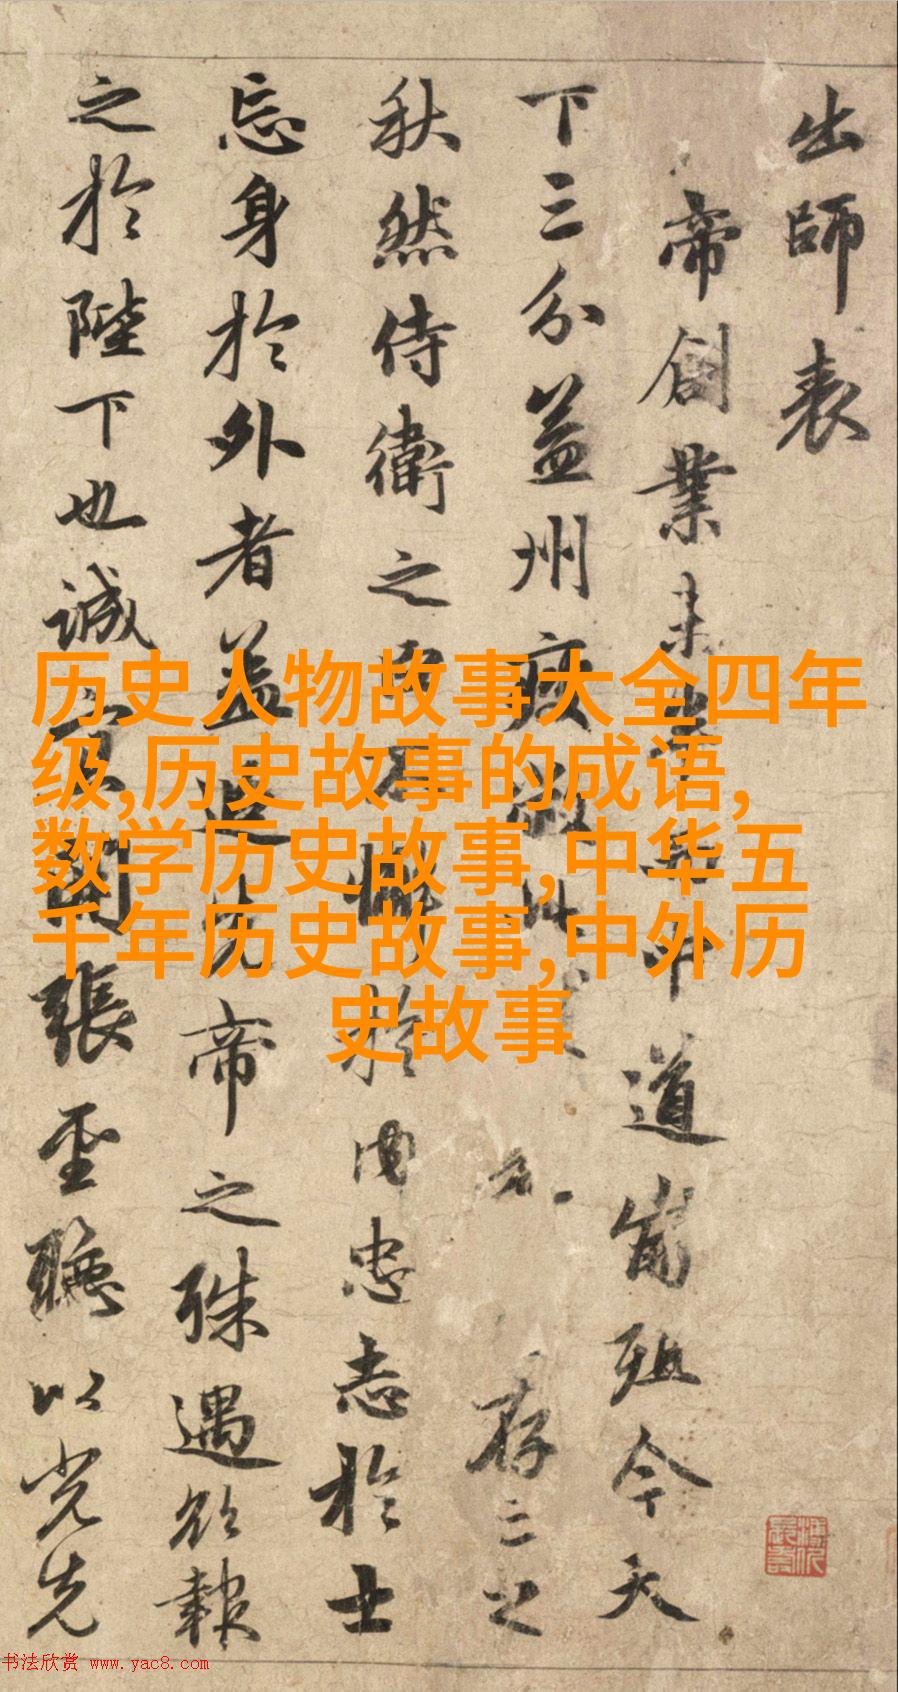 出師表
帝創業未中道崩殂今天
下三分益州疲敝存亡之
秋然侍衛之臣不懈於内忠志於士
忘身於外者蓋追先帝之殊遇欲報
之於陛下也誠宜開張聖聽以光先
历史人物故事大全四年
级,历史故事的成语,
数学历史故事,中华五
千年历史故事,中外历
史故事
书法欣赏 www.yac8.com